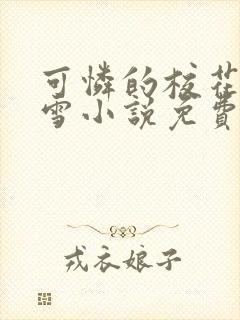 可憐的校花
雪小說免費
戎衣娘子